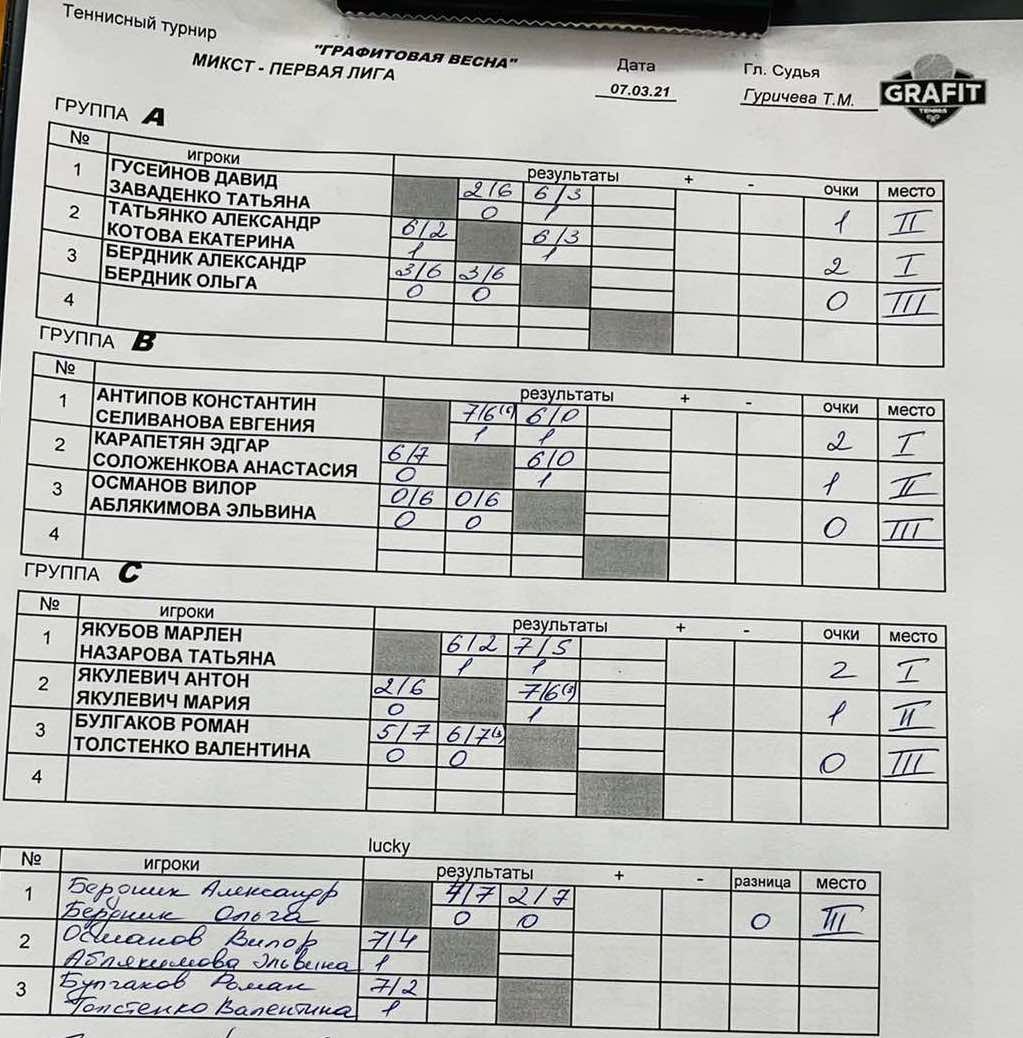 Теннисный турнир
"ГРАФИТОВАЯ ВЕСНА"
МИКСТ - ПЕРВАЯ ЛИГА
Дата
07.03.21
Гл. Судья
Гуричева Т.М.
GRAFIT
ТЕННИС
ГРУППА A
№ игроки результаты + - очки место
1 ГУСЕЙНОВ ДАВИД 2/6 6/3
ЗАВАДЕНКО ТАТЬЯНА 0 1 1 II
2 ТАТЬЯНКО АЛЕКСАНДР 6/2 6/3
КОТОВА ЕКАТЕРИНА 1 1 2 I
3 БЕРДНИК АЛЕКСАНДР 3/6 3/6
БЕРДНИК ОЛЬГА 0 0 0 III
4
ГРУППА B
№ результаты + - очки место
1 АНТИПОВ КОНСТАНТИН 7/6(6) 6/0
СЕЛИВАНОВА ЕВГЕНИЯ 1 1 2 I
2 КАРАПЕТЯН ЭДГАР 6/7 6/0
СОЛОЖЕНКОВА АНАСТАСИЯ 0 1 1 II
3 ОСМАНОВ ВИЛОР 0/6 0/6
АБЛЯКИМОВА ЭЛЬВИНА 0 0 0 III
4
ГРУППА C
№ игроки результаты + - очки место
1 ЯКУБОВ МАРЛЕН 6/2 7/5
НАЗАРОВА ТАТЬЯНА 1 1 2 I
2 ЯКУЛЕВИЧ АНТОН 2/6 7/6(3)
ЯКУЛЕВИЧ МАРИЯ 0 1 1 II
3 БУЛГАКОВ РОМАН 5/7 6/7(3)
ТОЛСТЕНКО ВАЛЕНТИНА 0 0 0 III
4
lucky
№ игроки результаты + - разница место
1 Бердник Александр 4/7 2/7
Бердник Ольга 0 0 0 III
2 Османов Вилор 7/4
Аблякимова Эльвина 1
3 Булгаков Роман 7/2
Толстенко Валентина 1